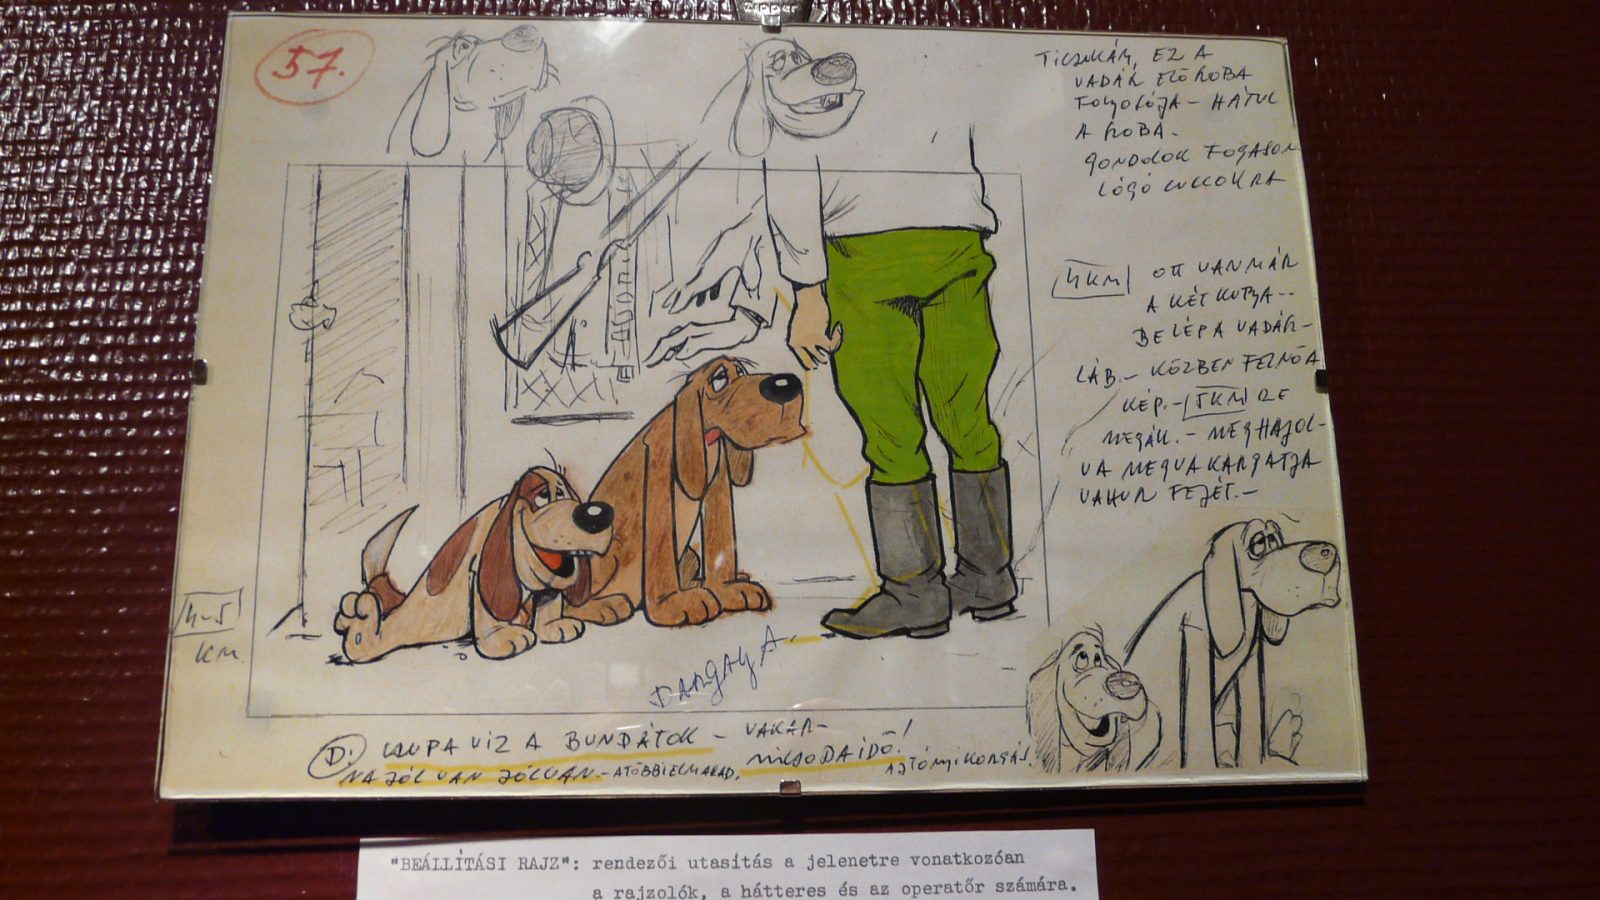 zipper
57.
TICSUKÁM, EZ A
VADÁK ELŐSZOBA
FOLYOSÓJA - HÁTUL
A SZOBA.
GONDOLOK FOGASON
LÓGÓ CUCCOKRA
4KM OTT VAN MÁR
A KÉT KUTYA..
BELÉP A VADÁSZ-
LÁB.- KÖZBEN FELNŐ A
KÉP.- 5KM RE
MEGÁLL.- MEGHAJOL-
VA MEGVAKARGATJA
VAHUR FEJÉT.-
4-5
KM
DARGAY A.
D: CSUPA VIZ A BUNDÁTOK - VAKAR-
NA JÓL VAN JÓLVAN.- A TÖBBI ELMARAD. MICSODA IDŐ! AJTÓNYIKORGÁS!
"BEÁLLÍTÁSI RAJZ": rendezői utasítás a jelenetre vonatkozóan
a rajzolók, a hátteres és az operatőr számára.